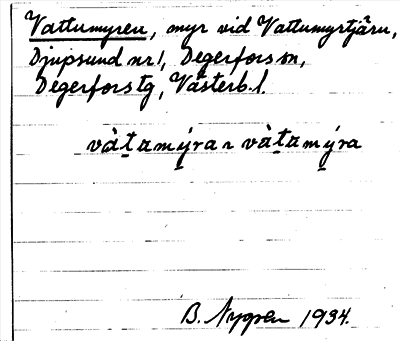 Vattumyren, myr vid Vattumyrtjärn,
Djupsund nr 1, Degerfors sn,
Degerfors tg, Västerb. l.
vàt̠amýra ~ vàt̠amýra
B. Nygren 1934.